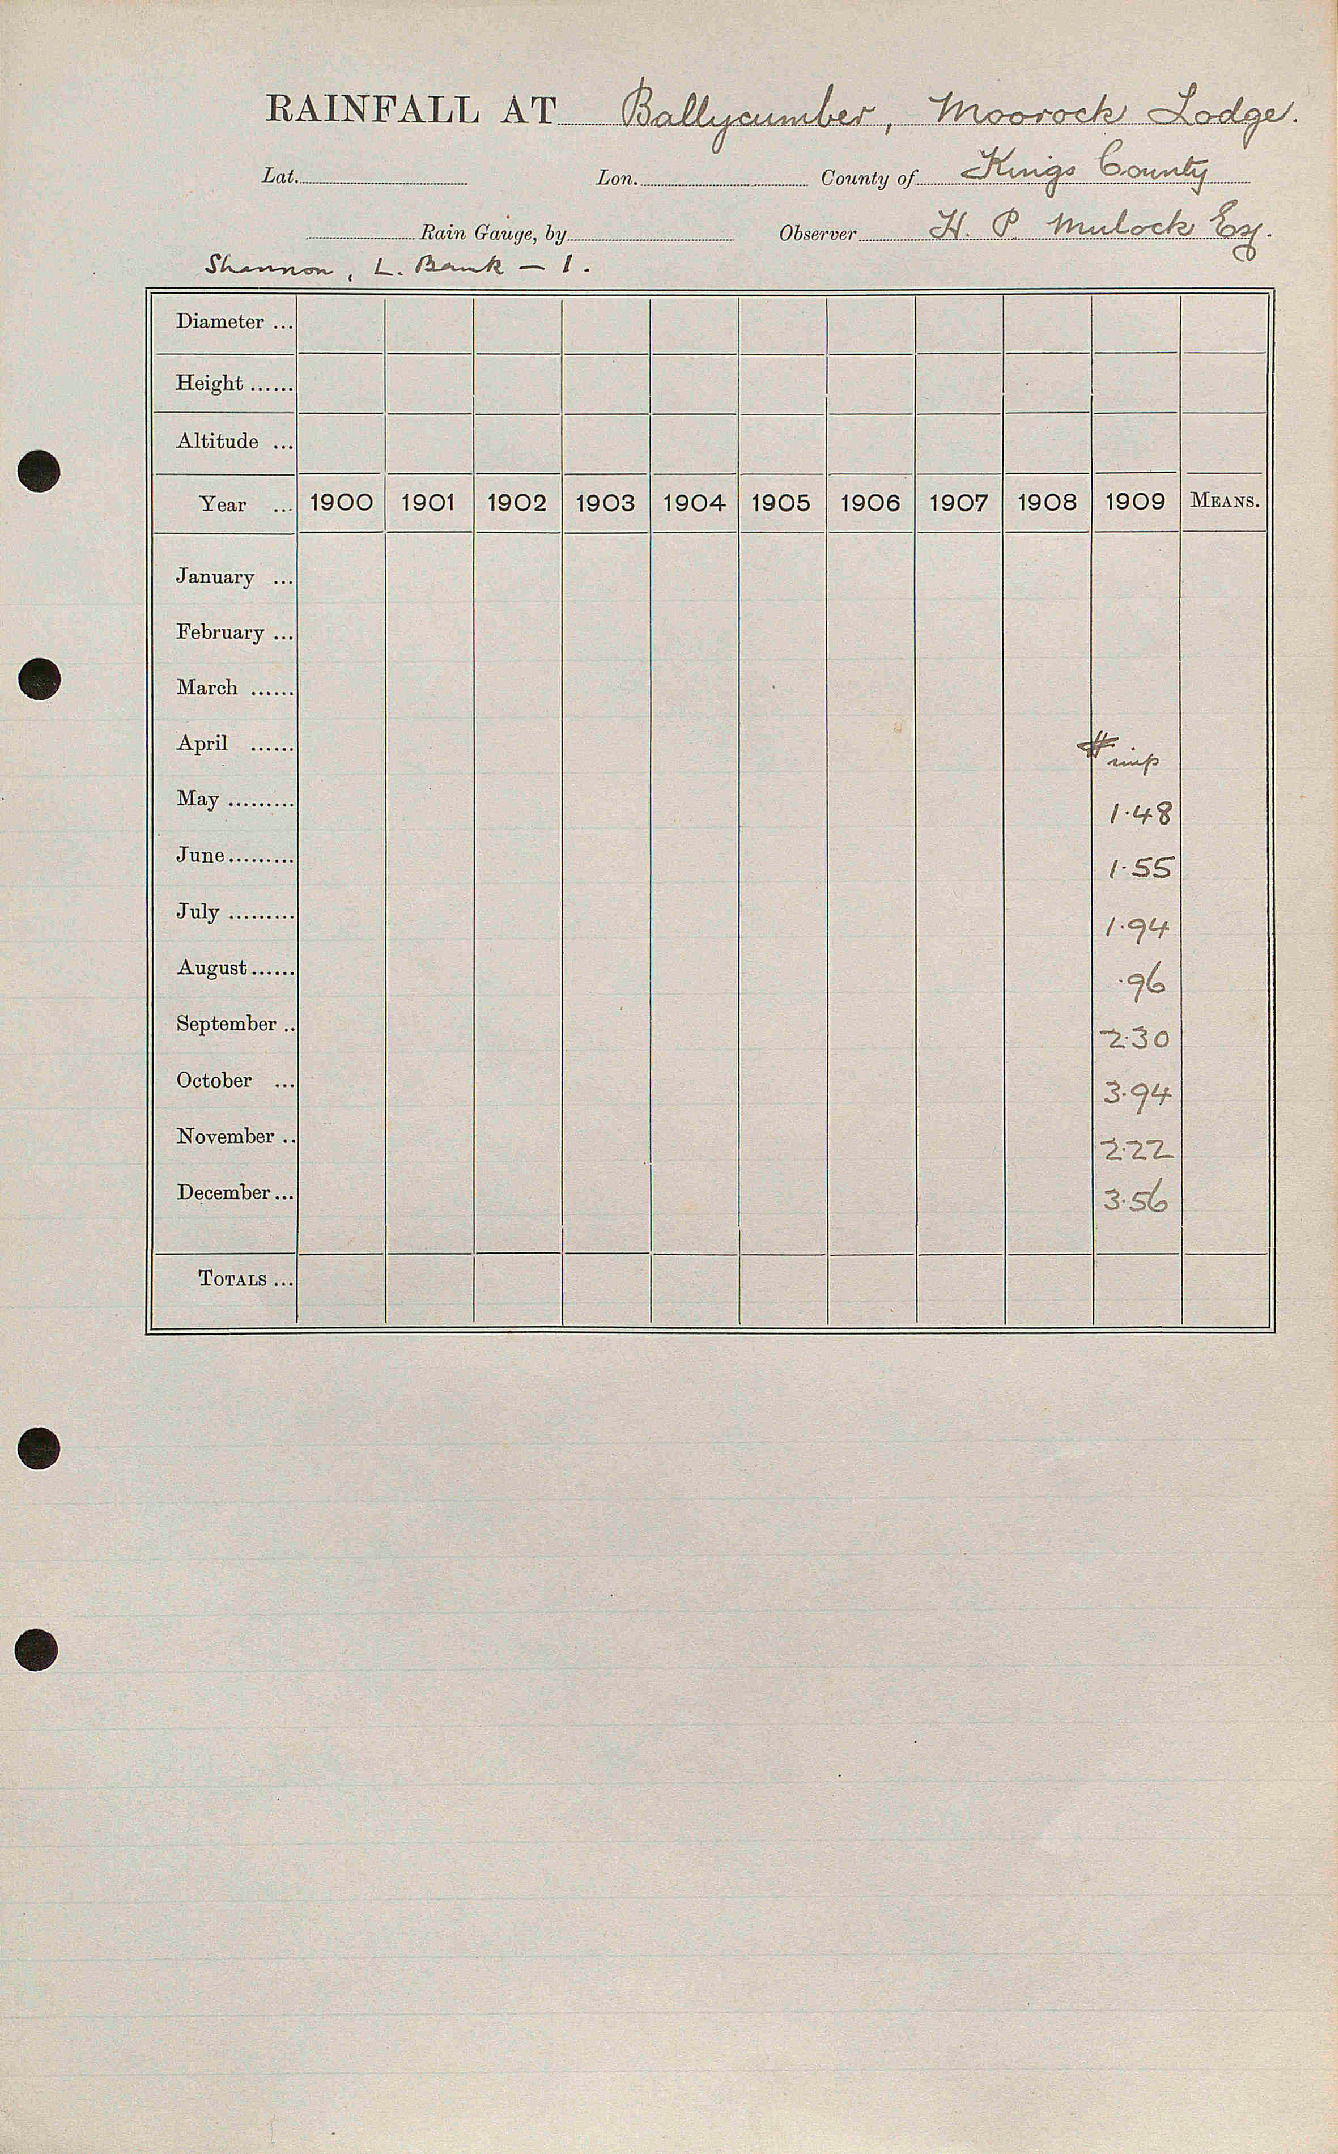 RAINFALL AT Ballycumber, Moorock Lodge.
Lat. Lon. County of Kings County
Rain Gauge, by Observer H. P. Mulock Esq.
Shannon, L. Bank — 1.
Diameter ...
Height ......
Altitude ...
Year ... 1900 1901 1902 1903 1904 1905 1906 1907 1908 1909 MEANS.
January ...
February ...
March ......
April ...... imp
May ......... 1.48
June ......... 1.55
July ......... 1.94
August ...... .96
September .. 2.30
October ... 3.94
November .. 2.22
December ... 3.56
TOTALS ...